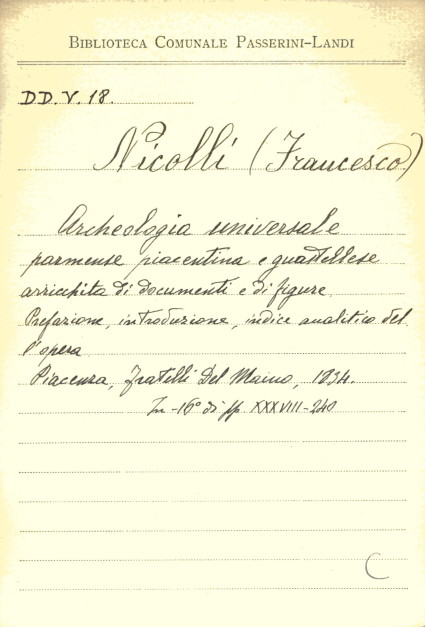 BIBLIOTECA COMUNALE PASSERINI-LANDI
DD.V.18.
Nicolli (Francesco)
Archeologia universale
parmense piacentina e guastallese
arricchita di documenti e di figure.
Prefazione, introduzione, indice analitico del
l'opera
Piacenza, Fratelli Del Maino, 1834.
In-16° di pp. XXXVIII-240
C